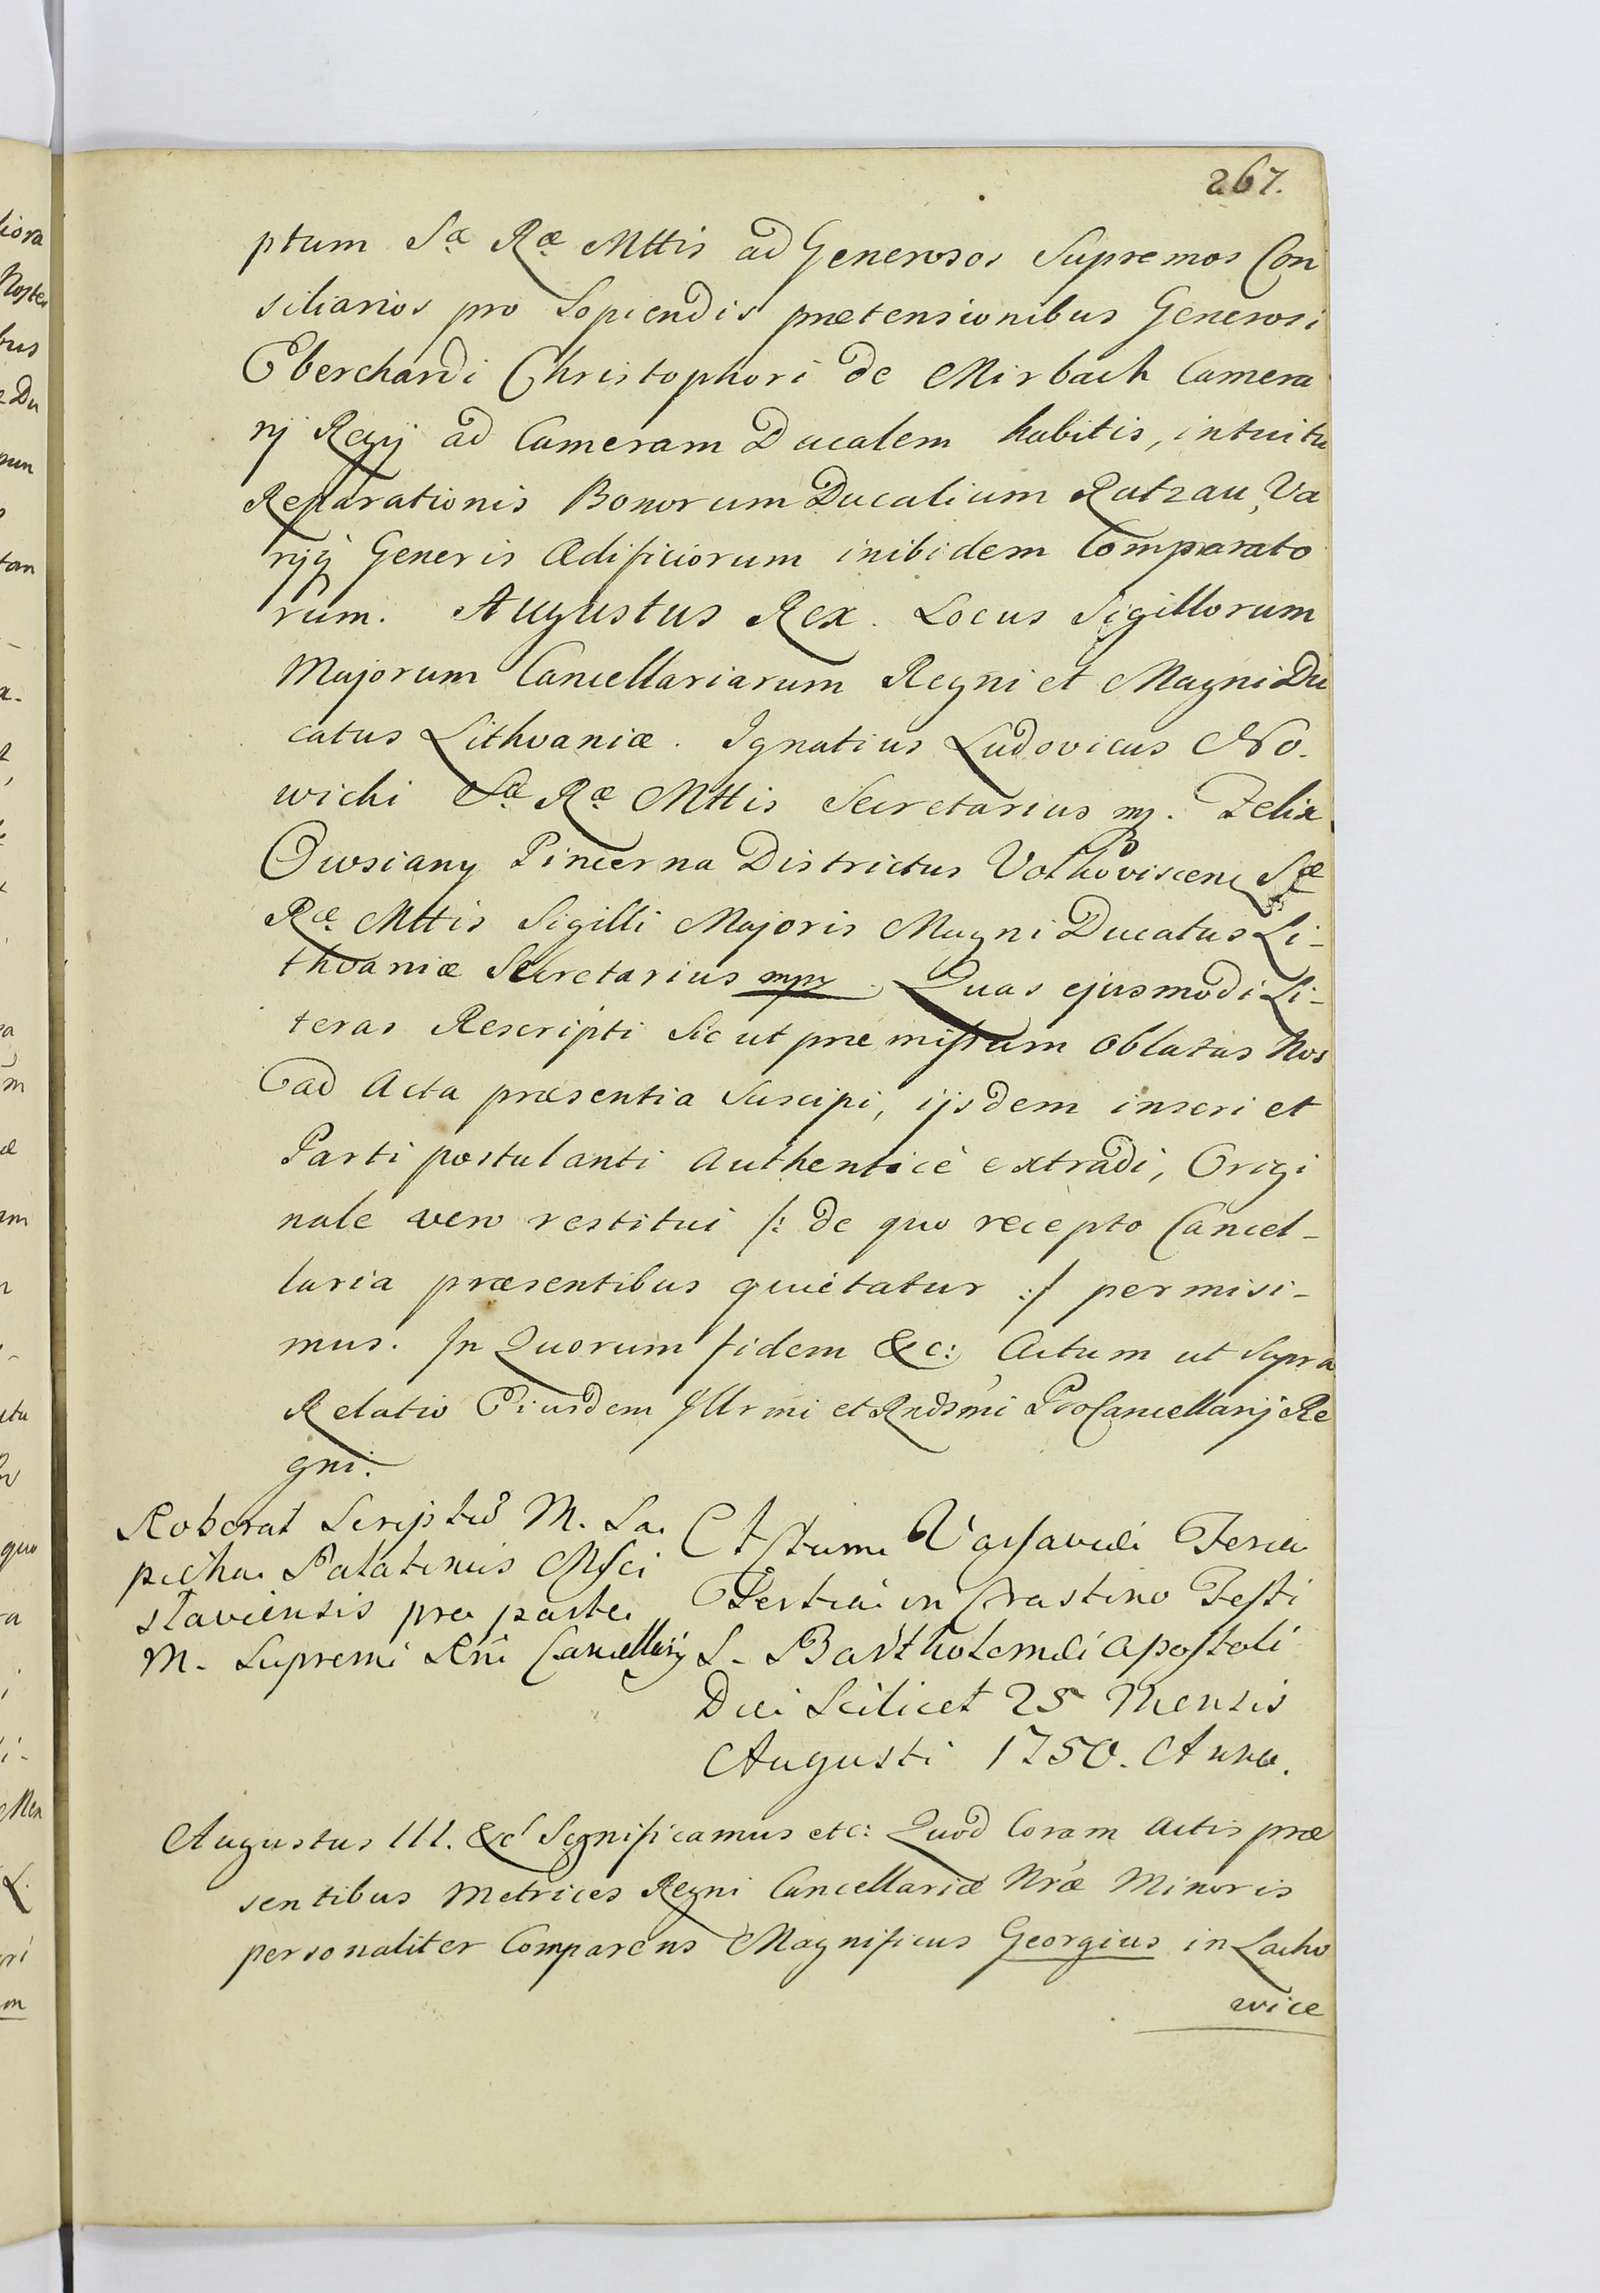 267.
ptum Sæ Ræ Mttis ad Generosos Supremos Con
siliarios pro Sopiendis prætensionibus Generosi
Eberchardi Christophori de Mirbach Camera
rij Regij ad Cameram Ducalem habitis, intuitu
Reparationis Bonorum Ducalium Rutzau, Va
rijq Generis Ædificiorum inibidem Comparato
rum. Augustus Rex. Locus Sigillorum
Majorum Cancellariarum Regni et Magni Du
catus Lithvaniæ. Ignatius Ludovicus No-
wicki Sæ Ræ Mttis Secretarius mp. Felix
Owsiany Pincerna Districtus Volkoviscens Sæ
Ræ Mttis Sigilli Majoris Magni Ducatus Li-
thvaniæ Secretarius mpr. Quas ejusmodi Li-
teras Rescripti Sic ut præmissum oblatas Nos
ad Acta præsentia Suscipi, ijsdem inseri et
Parti postulanti Authenticè extradi, Origi
nale vero restitui /: de quo recepto Cancel-
laria præsentibus quietatur :/ permisi-
mus. In Quorum fidem &c: Actum ut Supra
Relatio Eiusdem Illrmi et Rndsmi ProCancellarij Re
gni.
Roborat Scriptū M. Sa
pieha Palatinus Msci
slaviensis pro parte
M. Supremi Rni Cancellarij
Actum Varsaviæ Feria
Tertia in Crastino Festi
S. Bartholomæi Apostoli
Die Scilicet 25 Mensis
Augusti 1750. Anno.
Augustus III. &c Significamus etc: Quod Coram Actis præ
sentibus Metrices Regni Cancellariæ Nræ Minoris
personaliter Comparens Magnificus Georgius in Lacho
wice